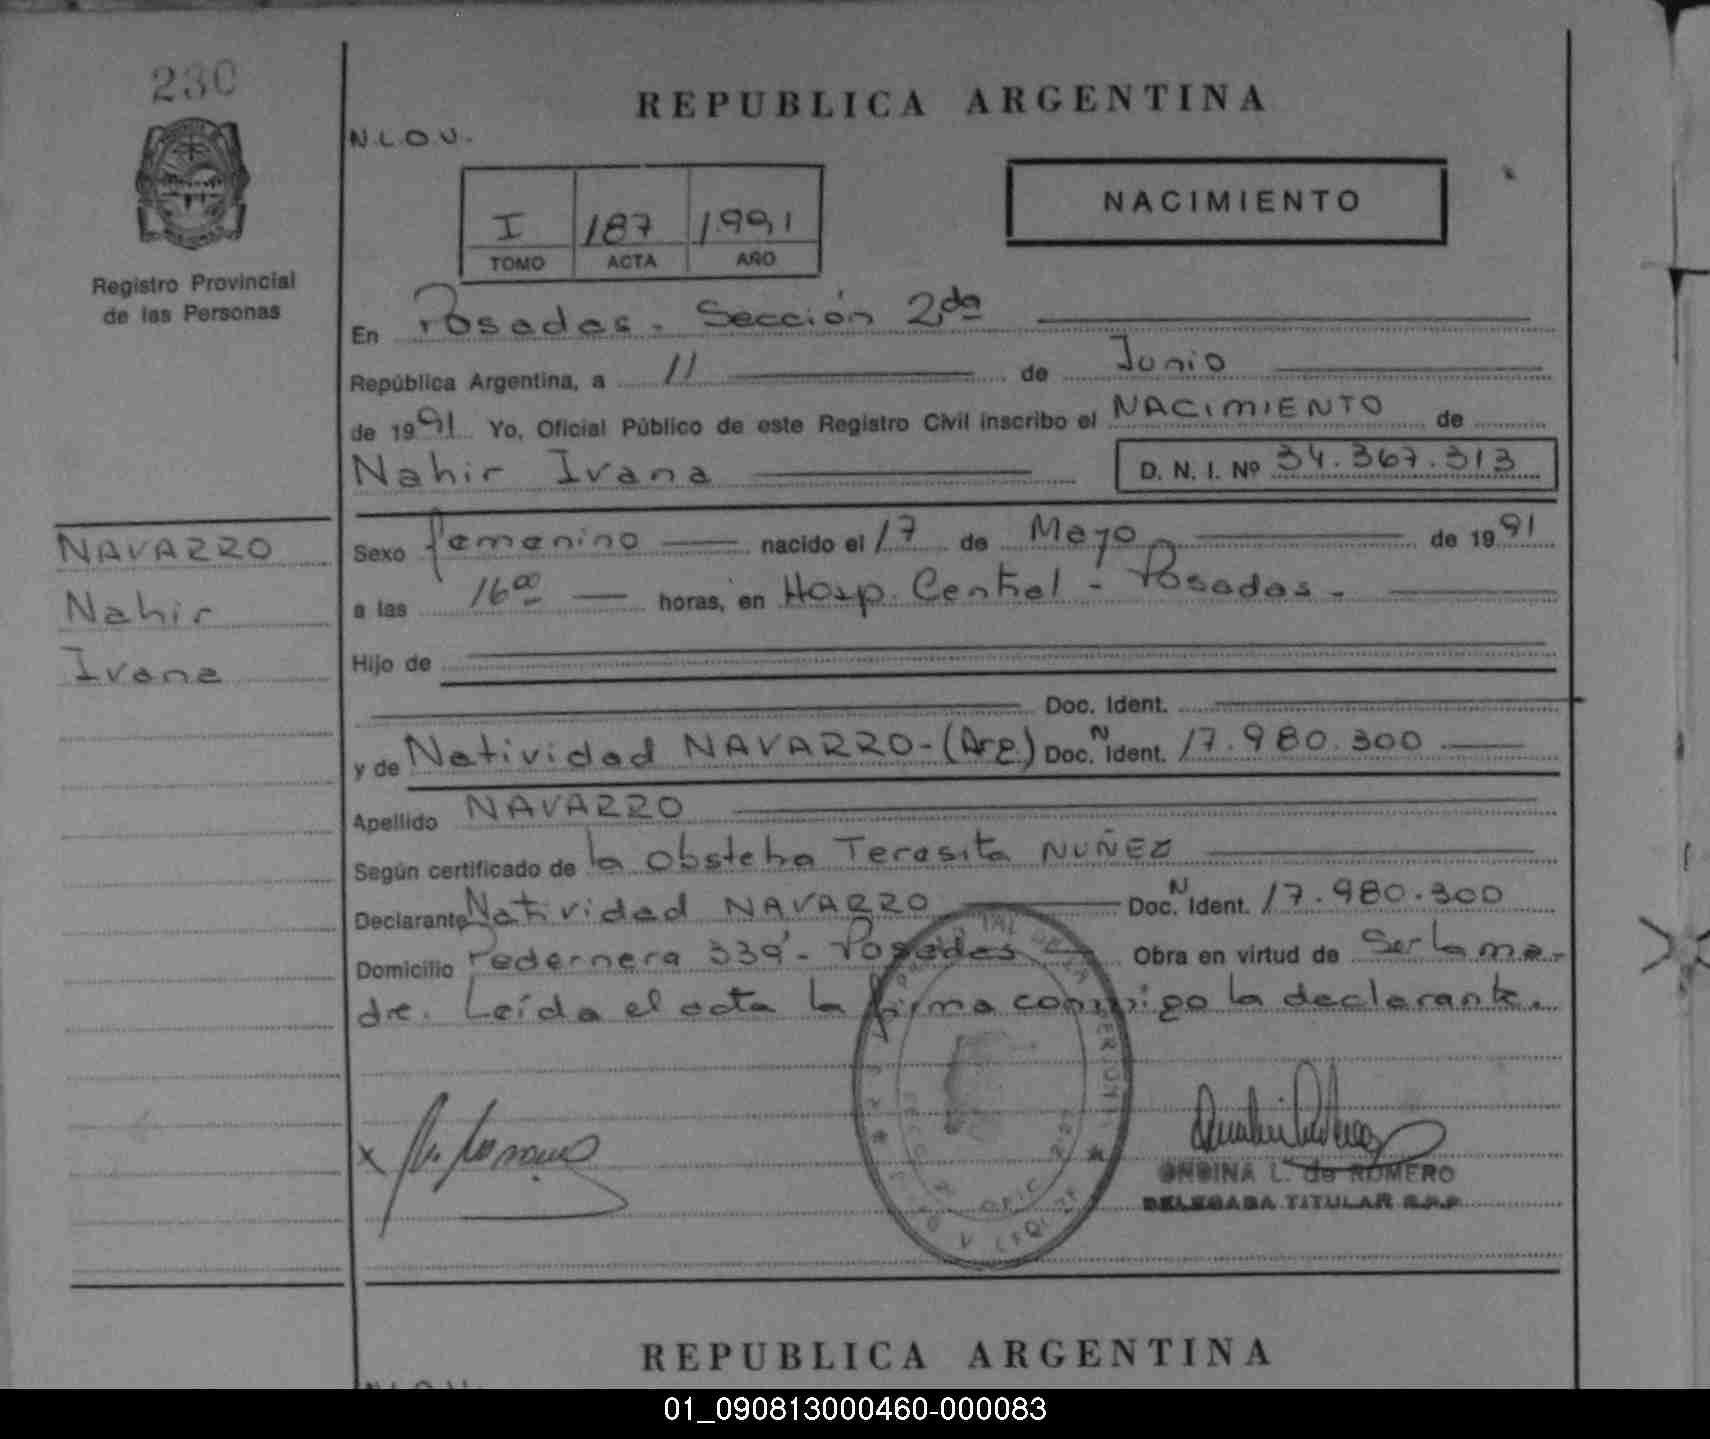 230
Registro Provincial
de las Personas
REPUBLICA ARGENTINA
N.L.O.U.
I 187 1991
TOMO ACTA AÑO
NACIMIENTO
En Posadas - Sección 2da
República Argentina, a 11 de Junio
de 1991 Yo, Oficial Público de este Registro Civil inscribo el NACIMIENTO de
Nahir Ivana D. N. I. Nº 34.367.313
NAVARRO
Nahir
Ivana
Sexo femenino nacido el 17 de Mayo de 1991
a las 16 00 horas, en Hosp. Central - Posadas -
Hijo de
Doc. Ident.
y de Natividad NAVARRO - (Arg.) Doc. N Ident. 17.980.300
Apellido NAVARRO
Según certificado de la obstetra Teresita NUÑEZ
Declarante Natividad NAVARRO Doc. N Ident. 17.980.300
Domicilio Pedernera 339 - Posadas Obra en virtud de Ser la ma-
dre. Leída el acta la firma conmigo la declarante.
x
ONDINA L. de ROMERO
DELEGADA TITULAR R.P.P.
REPUBLICA ARGENTINA
N.L.O.U.
01_090813000460-000083